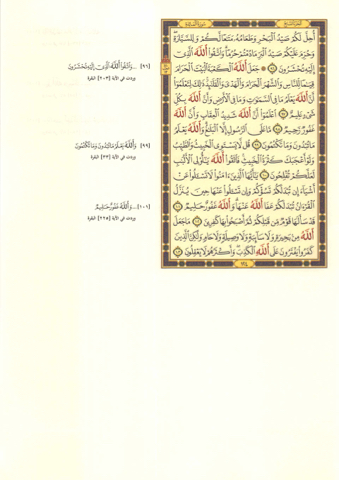 سورة المائدة
الجزء السابع
أُحِلَّ لَكُمْ صَيْدُ ٱلْبَحْرِ وَطَعَامُهُۥ مَتَـٰعًا لَّكُمْ وَلِلسَّيَّارَةِ ۖ
وَحُرِّمَ عَلَيْكُمْ صَيْدُ ٱلْبَرِّ مَا دُمْتُمْ حُرُمًا ۗ وَٱتَّقُوا۟ ٱللَّهَ ٱلَّذِىٓ
إِلَيْهِ تُحْشَرُونَ ٩٦ ۞ جَعَلَ ٱللَّهُ ٱلْكَعْبَةَ ٱلْبَيْتَ ٱلْحَرَامَ
قِيَـٰمًا لِّلنَّاسِ وَٱلشَّهْرَ ٱلْحَرَامَ وَٱلْهَدْىَ وَٱلْقَلَـٰٓئِدَ ۚ ذَٰلِكَ لِتَعْلَمُوٓا۟
أَنَّ ٱللَّهَ يَعْلَمُ مَا فِى ٱلسَّمَـٰوَٰتِ وَمَا فِى ٱلْأَرْضِ وَأَنَّ ٱللَّهَ بِكُلِّ
شَىْءٍ عَلِيمٌ ٩٧ ٱعْلَمُوٓا۟ أَنَّ ٱللَّهَ شَدِيدُ ٱلْعِقَابِ وَأَنَّ ٱللَّهَ
غَفُورٌ رَّحِيمٌ ٩٨ مَّا عَلَى ٱلرَّسُولِ إِلَّا ٱلْبَلَـٰغُ ۗ وَٱللَّهُ يَعْلَمُ
مَا تُبْدُونَ وَمَا تَكْتُمُونَ ٩٩ قُل لَّا يَسْتَوِى ٱلْخَبِيثُ وَٱلطَّيِّبُ
وَلَوْ أَعْجَبَكَ كَثْرَةُ ٱلْخَبِيثِ ۚ فَٱتَّقُوا۟ ٱللَّهَ يَـٰٓأُو۟لِى ٱلْأَلْبَـٰبِ
لَعَلَّكُمْ تُفْلِحُونَ ١٠٠ يَـٰٓأَيُّهَا ٱلَّذِينَ ءَامَنُوا۟ لَا تَسْـَٔلُوا۟ عَنْ
أَشْيَآءَ إِن تُبْدَ لَكُمْ تَسُؤْكُمْ وَإِن تَسْـَٔلُوا۟ عَنْهَا حِينَ يُنَزَّلُ
ٱلْقُرْءَانُ تُبْدَ لَكُمْ عَفَا ٱللَّهُ عَنْهَا ۗ وَٱللَّهُ غَفُورٌ حَلِيمٌ ١٠١
قَدْ سَأَلَهَا قَوْمٌ مِّن قَبْلِكُمْ ثُمَّ أَصْبَحُوا۟ بِهَا كَـٰفِرِينَ ١٠٢ مَا جَعَلَ
ٱللَّهُ مِنۢ بَحِيرَةٍ وَلَا سَآئِبَةٍ وَلَا وَصِيلَةٍ وَلَا حَامٍ ۙ وَلَـٰكِنَّ ٱلَّذِينَ
كَفَرُوا۟ يَفْتَرُونَ عَلَى ٱللَّهِ ٱلْكَذِبَ ۖ وَأَكْثَرُهُمْ لَا يَعْقِلُونَ ١٠٣
١٢٤
[٩٦] ...وَٱتَّقُوا۟ ٱللَّهَ ٱلَّذِىٓ إِلَيْهِ تُحْشَرُونَ
وردت في الآية [٢٠٣] البقرة
[٩٩] ...وَٱللَّهُ يَعْلَمُ مَا تُبْدُونَ وَمَا تَكْتُمُونَ
وردت في الآية [٣٣] البقرة
[١٠١] ...وَٱللَّهُ غَفُورٌ حَلِيمٌ
وردت في الآية [٢٢٥] البقرة